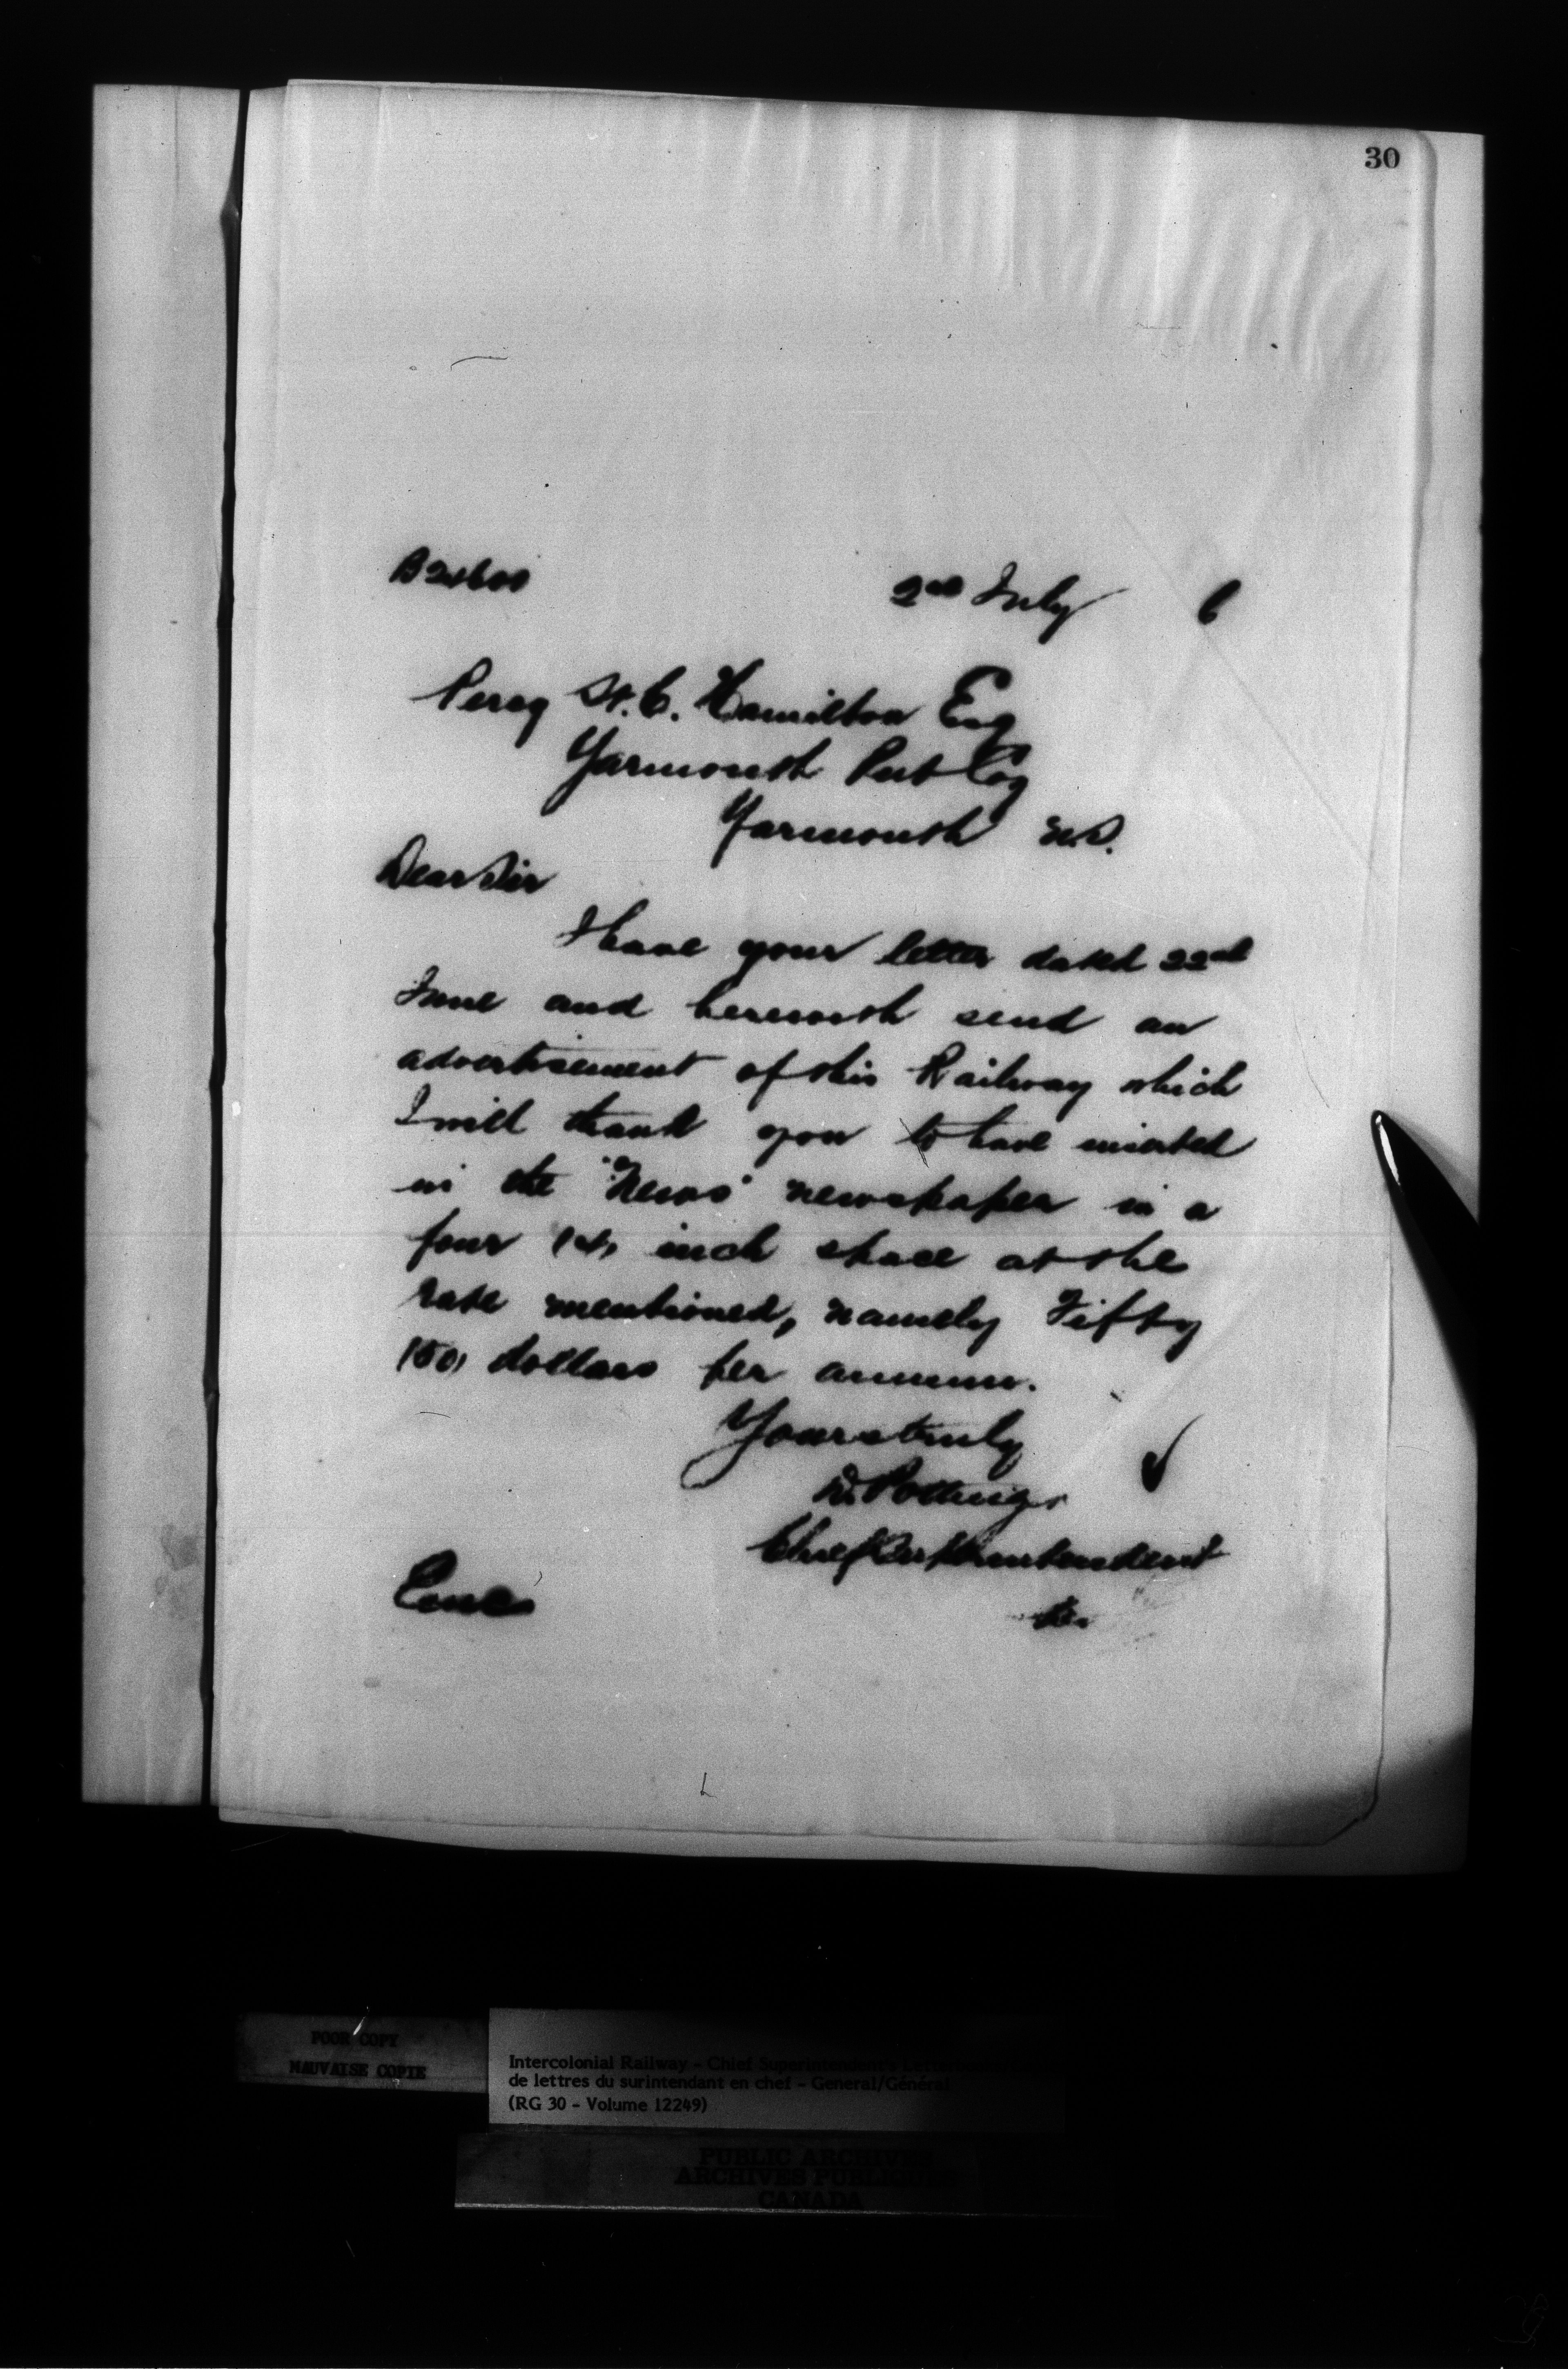 30
2nd July 6
Percy St. C. Hamilton Esq
Yarmouth Pub Coy
Yarmouth N.S.
Dear Sir
I have your letter dated 22nd
June and herewith send an
advertisement of this Railway which
I will thank you to have inserted
in the "News" newspaper in a
four (4) inch space at the
rate mentioned, namely Fifty
(50) dollars per annum.
Yours truly
D. Pottinger
Chief Superintendent
Enc
POOR COPY
MAUVAISE COPIE
Intercolonial Railway - Chief Superintendent's
de lettres du surintendant en chef - General/Général
(RG 30 - Volume 12249)
PUBLIC ARCHIVES
ARCHIVES PUBLIQUES
CANADA